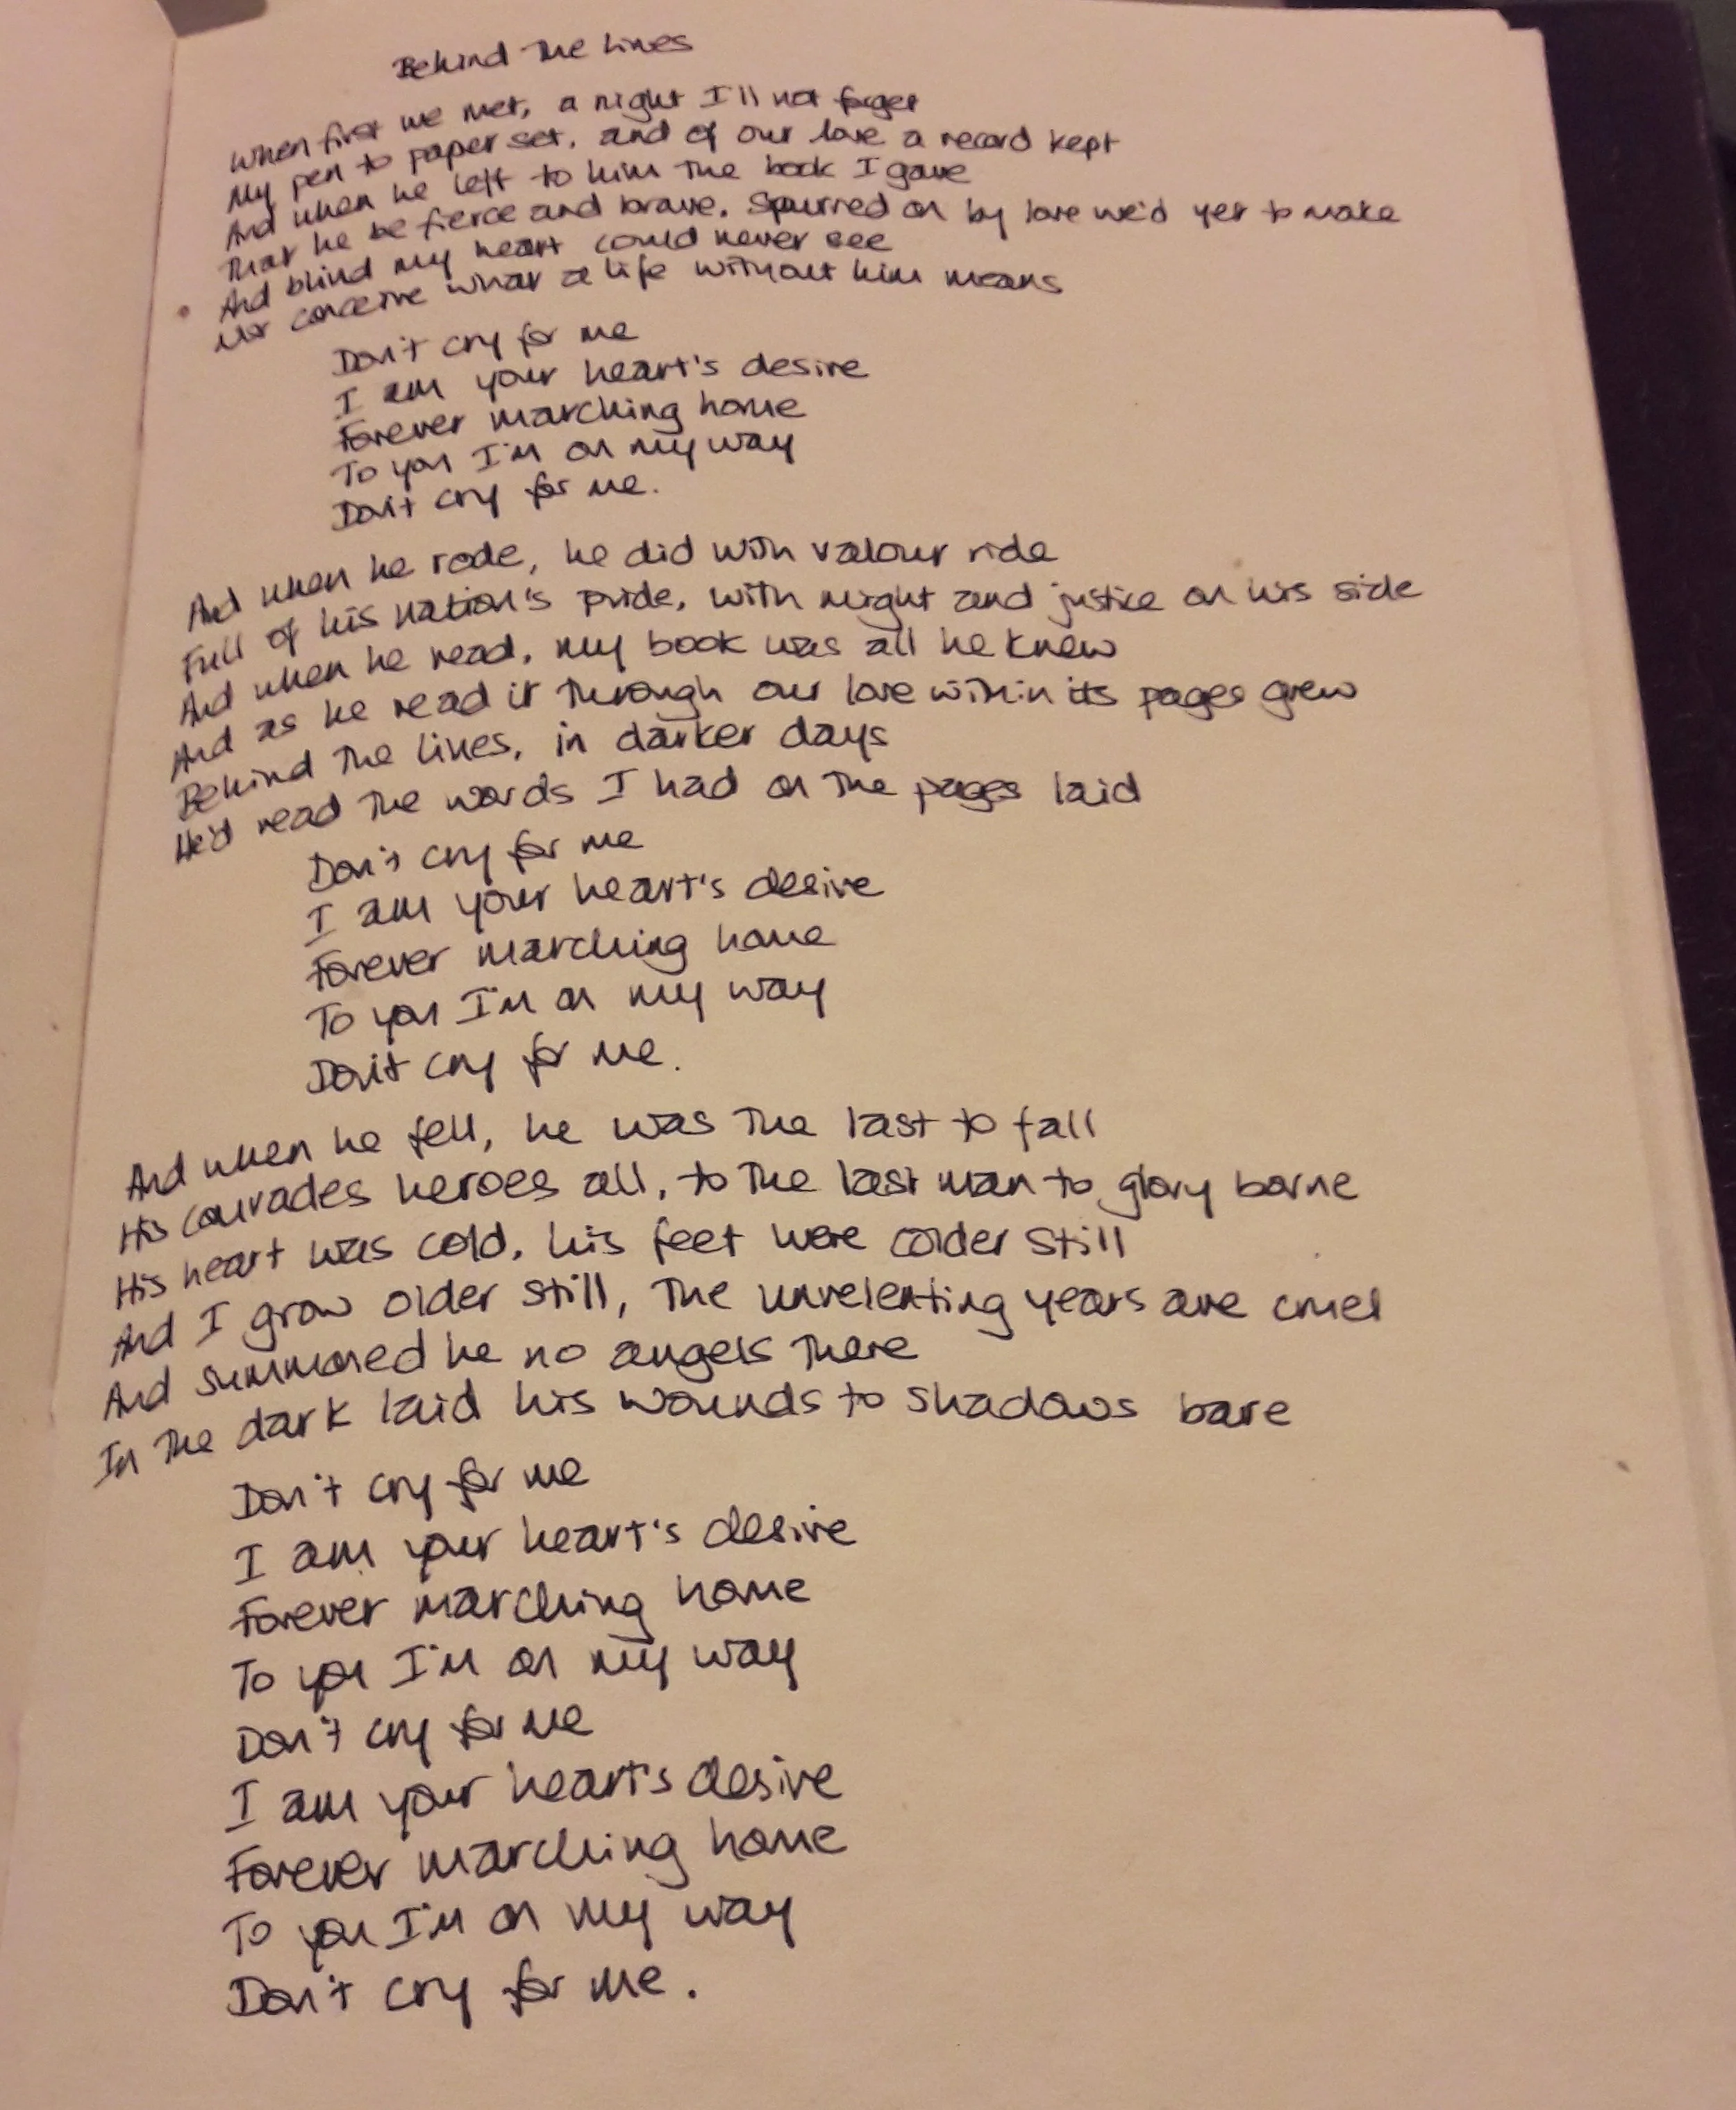 Behind The Lines
When first we met, a night I'll not forget
My pen to paper set, and of our love a record kept
And when he left to him the book I gave
That he be fierce and brave, spurred on by love we'd yet to make
And blind my heart could never see
Nor conceive what a life without him means
Don't cry for me
I am your heart's desire
Forever marching home
To you I'm on my way
Don't cry for me.
And when he rode, he did with valour ride
Full of his nation's pride, with might and justice on his side
And when he read, my book was all he knew
And as he read it through our love within its pages grew
Behind The Lines, in darker days
He'd read the words I had on the pages laid
Don't cry for me
I am your heart's desire
Forever marching home
To you I'm on my way
Don't cry for me.
And when he fell, he was the last to fall
His comrades heroes all, to the last man to glory borne
His heart was cold, his feet were colder still
And I grow older still, the unrelenting years are cruel
And summoned he no angels there
In the dark laid his wounds to shadows bare
Don't cry for me
I am your heart's desire
Forever marching home
To you I'm on my way
Don't cry for me
I am your heart's desire
Forever marching home
To you I'm on my way
Don't cry for me.